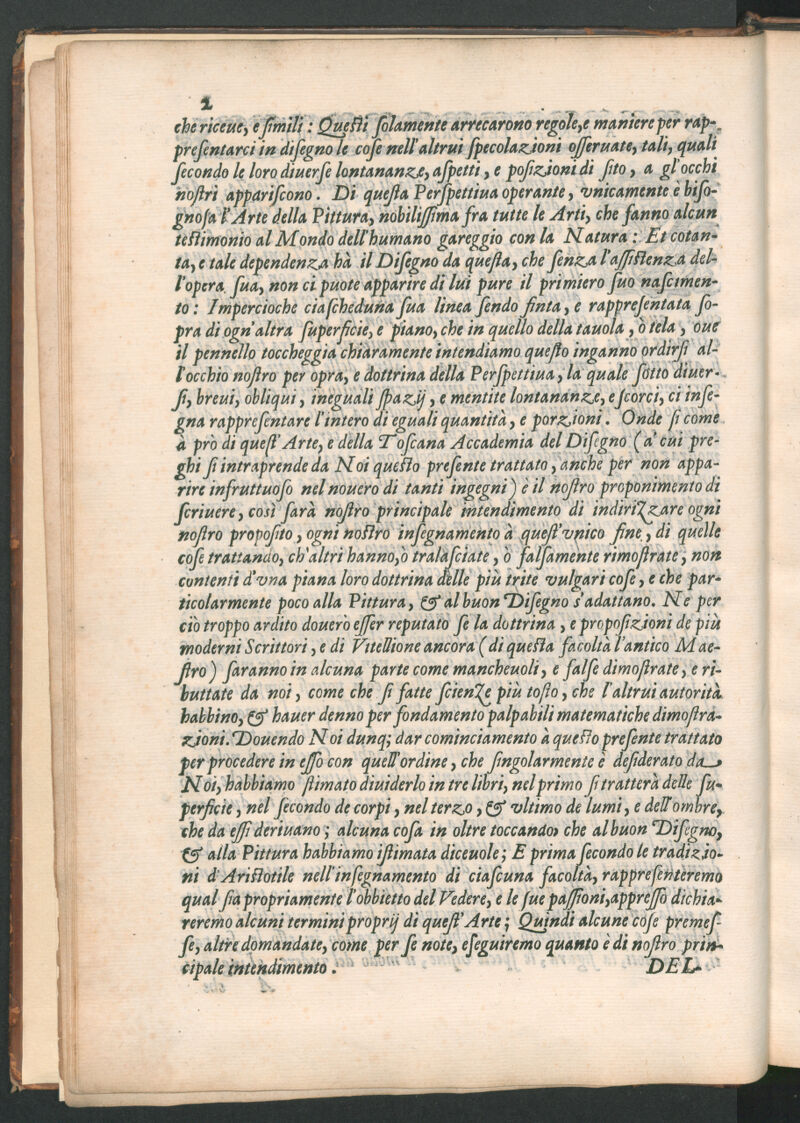 2
che riceue, e ſimili : Queſti ſolamente arrecarono regole,e maniere per rap-
preſentarci in diſegno le coſe nell'altrui ſpecolazioni oſſeruate, tali, quali
ſecondo le loro diuerſe lontananze, aſpetti , e poſizioni di ſito , a gl'occhi
noſtri appariſcono . Di queſta Perſpettiua operante , vnicamente è biſo-
gnoſa l'Arte della Pittura, nobiliſſima fra tutte le Arti, che fanno alcun
teſtimonio al Mondo dell'humano gareggio con la Natura : Et cotan-
ta, e tale dependenza hà il Diſegno da queſta, che ſenza l'aſſiſtenza del-
l'opera ſua, non ci puote apparire di lui pure il primiero ſuo naſcimen-
to : Impercioche ciaſcheduna ſua linea ſendo finta, e rappreſentata ſo-
pra di ogn'altra ſuperficie, e piano, che in quello della tauola , ò tela , oue
il pennello toccheggia chiaramente intendiamo queſto inganno ordirſi al-
l'occhio noſtro per opra, e dottrina della Perſpettiua, la quale ſotto diuer-
ſi, breui, obliqui , ineguali ſpazij , e mentite lontananze, e ſcorci, ci inſe-
gna rappreſentare l'intero di eguali quantità , e porzioni . Onde ſi come
à prò di queſt'Arte, e della Toſcana Accademia del Diſegno ( a' cui pre-
ghi ſi intraprende da Noi queſto preſente trattato , anche per non appa-
rire infruttuoſo nel nouero di tanti ingegni ) è il noſtro proponimento di
ſcriuere, così ſarà noſtro principale intendimento di indirizzare ogni
noſtro propoſito , ogni noſtro inſegnamento à queſt'vnico fine , di quelle
coſe trattando, ch'altri hanno,ò tralaſciate , ò falſamente rimoſtrate , non
contenti d'vna piana loro dottrina delle più trite vulgari coſe , e che par-
ticolarmente poco alla Pittura, & al buon Diſegno s'adattano. Ne per
ciò troppo ardito douerò eſſer reputato ſe la dottrina , e propoſizioni de più
moderni Scrittori , e di Vitellione ancora ( di queſta facoltà l'antico Mae-
ſtro ) ſaranno in alcuna parte come mancheuoli, e falſe dimoſtrate, e ri-
buttate da noi , come che ſi fatte ſcienze più toſto , che l'altrui autorità
habbino, & hauer denno per fondamento palpabili matematiche dimoſtra-
zioni. Douendo Noi dunq; dar cominciamento à queſto preſente trattato
per procedere in eſſo con quell'ordine , che ſingolarmente è deſiderato da
Noi, habbiamo ſtimato diuiderlo in tre libri, nel primo ſi tratterà delle ſu-
perficie , nel ſecondo de corpi , nel terzo , & vltimo de lumi , e dell'ombre,
che da eſſi deriuano ; alcuna coſa in oltre toccando, che al buon Diſegno,
& alla Pittura habbiamo iſtimata diceuole ; E prima ſecondo le tradizio-
ni d'Ariſtotile nell'inſegnamento di ciaſcuna facoltà, rappreſenteremo
qual ſia propriamente l'obbietto del Vedere, e le ſue paſſioni,appreſſo dichia-
reremo alcuni termini proprij di queſt'Arte ; Quindi alcune coſe premeſ-
ſe, altre domandate, come per ſe note, eſeguiremo quanto è di noſtro prin-
cipale intendimento .
DEL-